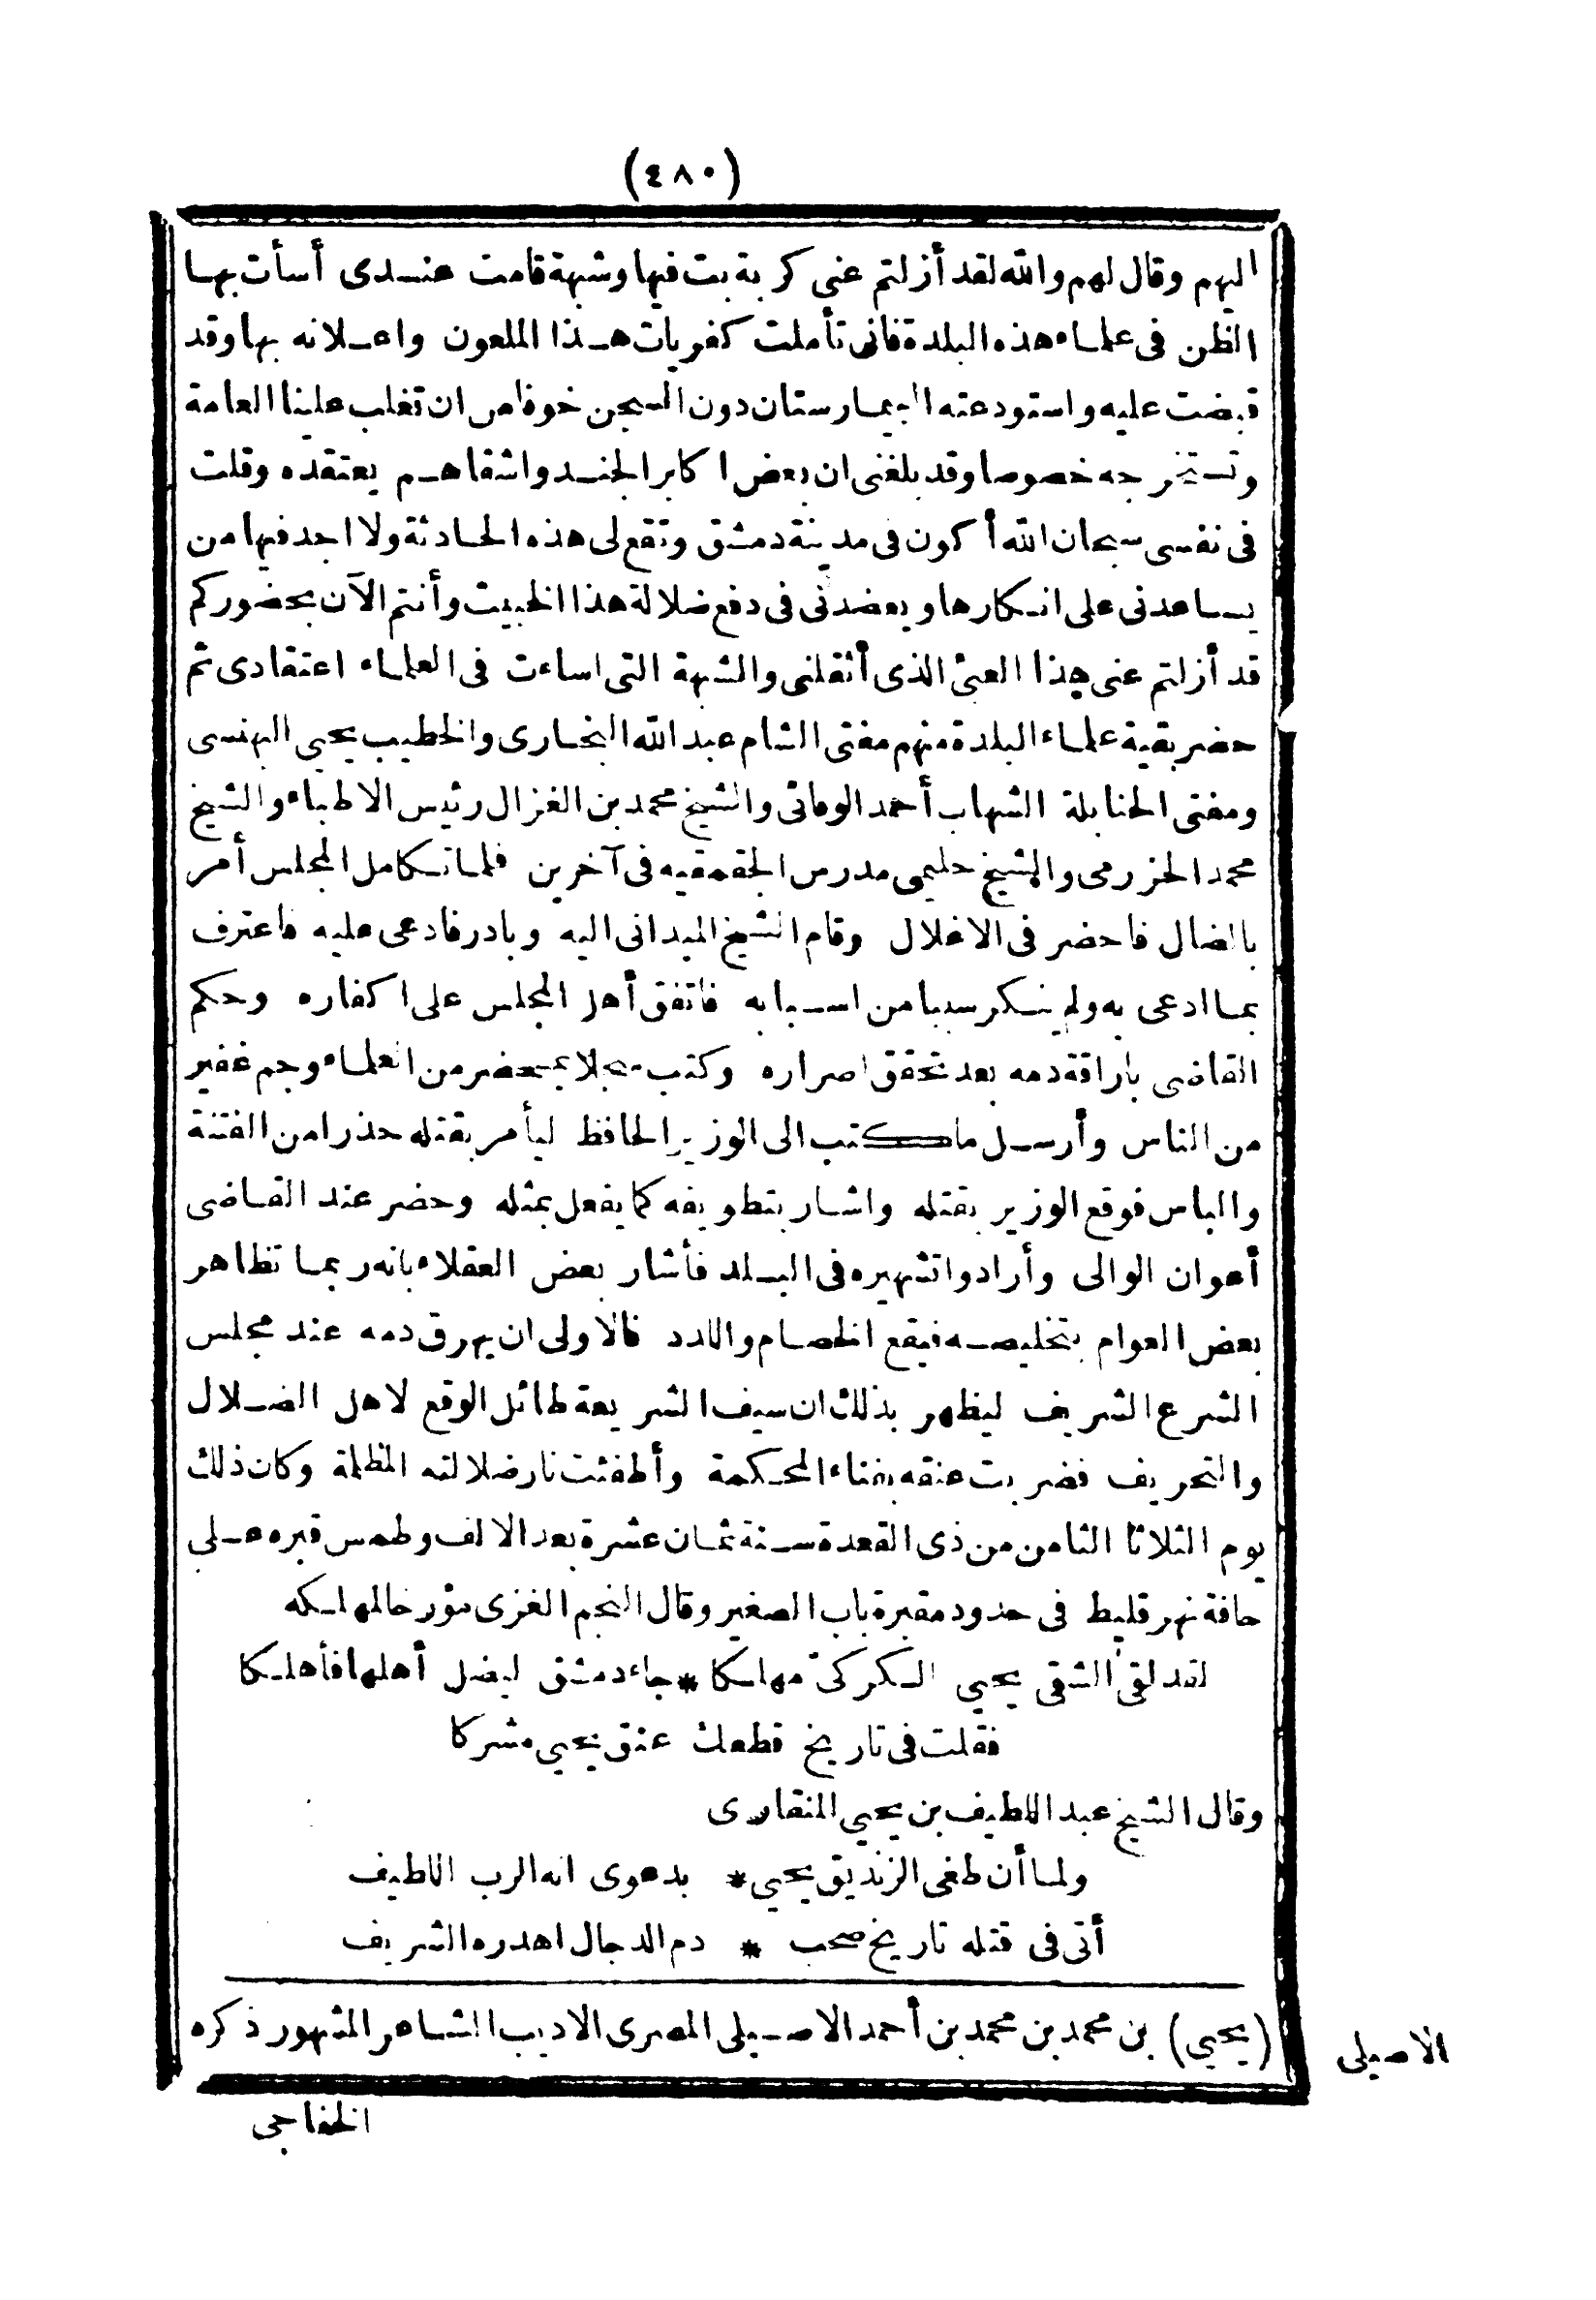 (٤٨٠)
اليهم وقال لهم والله لقد أزلتم عنى كربة بت فيها وشبهة قامت عندى أسأت بها
الظن فى علماء هذه البلدة فانى تأملت كفريات هذا الملعون واعلانه بها وقد
قبضت عليه واستودعته البيمارستان دون السجن خوفا من ان تغلب علينا العامة
وتستخرجه خصوصا وقد بلغنى ان بعض اكابر الجند واشقاهم يعتقده وقلت
فى نفسى سبحان الله أكون فى مدينة دمشق وتقع لى هذه الحادثة ولا اجد فيها من
يساعدنى على انكارها ويعضدنى فى دفع ضلالة هذا الخبيث وأنتم الآن بحضوركم
قد أزلتم عنى هذا العبئ الذى أثقلنى والشبهة التى اساءت فى العلماء اعتقادى ثم
حضر بقية علماء البلدة منهم مفتى الشام عبد الله البخارى والخطيب يحيى البهنسى
ومفتى الحنابلة الشهاب أحمد الوفائى والشيخ محمد بن الغزال رئيس الاطباء والشيخ
محمد الحزرمى والشيخ حليمى مدرس الجقمقيه فى آخرين فلما تكامل المجلس أمر
بالضال فاحضر فى الاغلال وقام الشيخ الميدانى اليه وبادر فادعى عليه فاعترف
بما ادعى به ولم ينكر سببا من اسبابه فاتفق أهل المجلس على اكفاره وحكم
القاضى باراقة دمه بعد تحقق اصراره وكتب سجلا بمحضر من العلماء وجم غفير
من الناس وأرسل ما كتب الى الوزير الحافظ ليأمر بقتله حذرا من الفتنة
والباس فوقع الوزير بقتله واشار بتطويفه كما يفعل بمثله وحضر عند القاضى
أعوان الوالى وأرادوا تشهيره فى البلد فأشار بعض العقلاء بانه ربما تظاهر
بعض العوام بتخليصه فيقع الخصام واللدد فالاولى ان يهرق دمه عند مجلس
الشرع الشريف ليظهر بذلك ان سيف الشريعة طائل الوقع لاهل الضلال
والتحريف فضربت عنقه بفناء المحكمة وأطفئت نار ضلالته المظلمة وكان ذلك
يوم الثلاثا الثامن من ذى القعدة سنة ثمان عشرة بعد الالف وطمس قبره على
حافة نهر قليط فى حدود مقبرة باب الصغير وقال النجم الغزى مؤرخا لمهلكه
لقد لقى الشقى يحيى الكركى مهلكا * جاء دمشق ليضل أهلها فأهلكا
فقلت فى تاريخ قطعك عنق يحيى مشركا
وقال الشيخ عبد اللطيف بن يحيى المنقارى
ولما أن طغى الزنديق يحيى * بدعوى انه الرب اللطيف
أتى فى قتله تاريخ صحب * دم الدجال اهدره الشريف
(يحيى) بن محمد بن محمد بن أحمد الاصيلى المصرى الاديب الشاعر المشهور ذكره
الاصيلى
الخفاجى